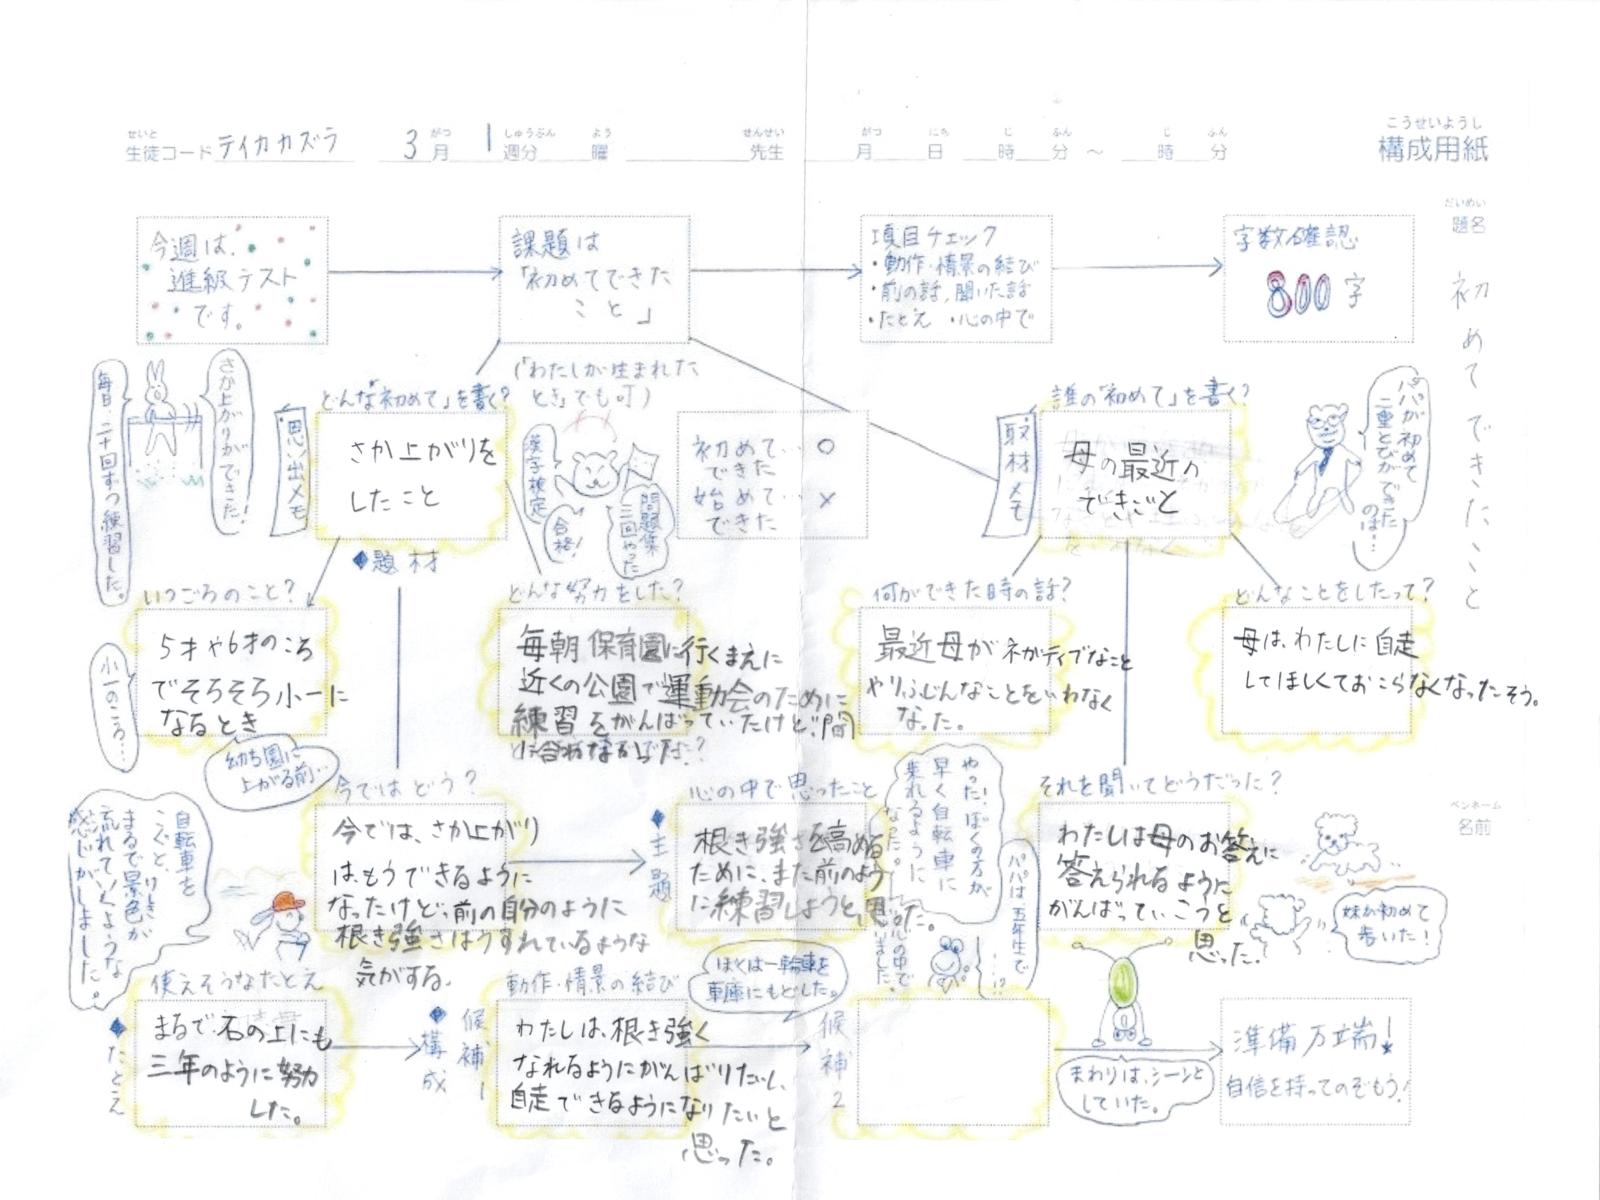 せいと
生徒コード テイカカズラ
3 月 がつ
1 週分 しゅうぶん
曜 よう
先生 せんせい
月 がつ 日 にち 時 じ 分 ふん ～ 時 じ 分 ふん
こうせいようし
構成用紙
だいめい
題名
初めてできたこと
ペンネーム
名前
今週は、
進級テスト
です。
課題は
「初めてできた
こと」
(「わたしが生まれた
とき」でも可)
項目チェック
・動作・情景の結び
・前の話、聞いた話
・たとえ ・心の中で
字数確認
800字
毎日、二十回ずつ練習した。
さか上がりができた!
思い出メモ
どんな「初めて」を書く?
さか上がりを
したこと
◆題材
漢字検定
合格!
問題集
三回やった
初めて…○
できた
始めて…×
できた
取材メモ
誰の「初めて」を書く?
母の最近の
できごと
パパが初めて
二重とびができた
のは…
いつごろのこと?
5才や6才のころ
でそろそろ小一に
なるとき
小一のころ…
幼ち園に
上がる前…
どんな努力をした?
毎朝保育園に行くまえに
近くの公園で運動会のために
練習をがんばっていたけど、間
に合わなか
何ができた時の話?
最近母がネガティブなこと
やりふじんなことをいわなく
なった。
どんなことをしたって?
母は、わたしに自走
してほしくておこらなくなったそう。
自転車を
こぐと、
まるで景色が
流れていくような
感じがしました。
今ではどう?
今では、さか上がり
は、もうできるように
なったけど、前の自分のように
根き強さはうすれているような
気がする。
◆主題
心の中で思ったこと
根き強さを高める
ために、また前のよう
に練習しようと思った。
やった!ぼくの方が
早く自転車に
乗れるように
なった。」
心の中で
いました。
パパは、五年生で
…!?
それを聞いてどうだった?
わたしは母のお答えに
答えられるように
がんばっていこうと
思った。
妹が初めて
歩いた!
◆たとえ
使えそうなたとえ
まるで、石の上にも
三年のように努力
した。
◆構成
候補1
動作・情景の結び
わたしは、根き強く
なれるようにがんばりたいし、
自走できるようになりたいと
思った。
ぼくは一輪車を
車庫にもどした。
候補2
まわりは、シーンと
していた。
準備万端!
自信を持ってのぞもう!